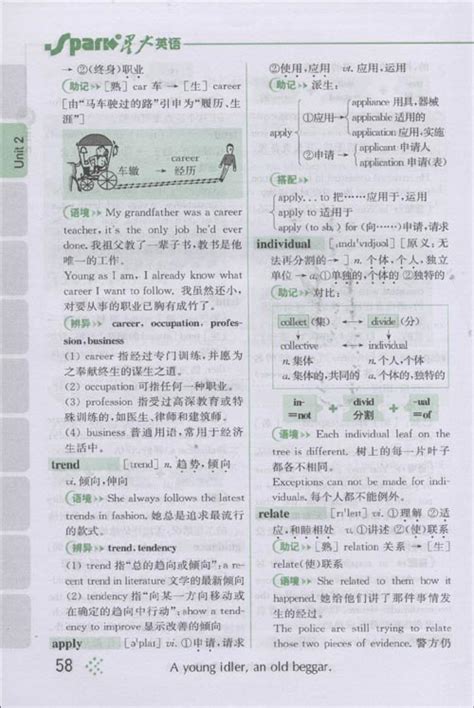 Spark 星火英语
Unit 2
→ ②(终身)职业
助记 [熟] car 车 → [生] career
[由“马车驶过的路”引申为“履历、生
涯”]
career
车辙 → 经历
语境 My grandfather was a career
teacher, it's the only job he'd ever
done. 我祖父教了一辈子书,教书是他
唯一的工作。
Young as I am, I already know what
career I want to follow. 我虽然还小,
对要从事的职业已胸有成竹了。
辨异 career, occupation, profes-
sion, business
(1) career 指经过专门训练,并愿为
之奉献终生的谋生之道。
(2) occupation 可指任何一种职业。
(3) profession 指受过高深教育或特
殊训练的,如医生、律师和建筑师。
(4) business 普通用语,常用于经济
生活中。
trend [trend] n. 趋势,倾向
vi. 倾向,伸向
语境 She always follows the latest
trends in fashion. 她总是追求最流行
的款式。
辨异 trend, tendency
(1) trend 指“总的趋向或倾向”:a re-
cent trend in literature 文学的最新倾向
(2) tendency 指“向某一方向移动或
在确定的趋向中行动”:show a tend-
ency to improve 显示改善的倾向
apply [ə'plaɪ] vi. ①申请,请求
②使用,应用 vt. 应用,运用
助记 派生:
apply
①应用→
appliance 用具,器械
applicable 适用的
application 应用,实施
②申请→
applicant 申请人
application 申请(表)
搭配
apply... to 把……应用于,运用
apply to 适用于
apply (to sb.) for (向……)申请,请求
individual [ˌɪndɪ'vɪdjuəl] [原义:无
法再分割的→] n. 个体,个人,独立
单位 → a. ①单独的,个体的 ②独特的
助记 对比:
collect (集) ←→ divide (分)
collective ←→ individual
n. 集体 n. 个人,个体
a. 集体的,共同的 a. 个体的,独特的
in- =not + divid 分割 + -ual =of
语境 Each individual leaf on the
tree is different. 树上的每一片叶子
都各不相同。
Exceptions can not be made for indi-
viduals. 每个人都不能例外。
relate [rɪ'leɪt] vi. ①理解 ②适
应,和睦相处 vt. ①讲述 ②(使)联系
助记 [熟] relation 关系 → [生]
relate(使)联系
语境 She related to them how it
happened. 她给他们讲了那件事情发
生的经过。
The police are still trying to relate
those two pieces of evidence. 警方仍
58 A young idler, an old beggar.